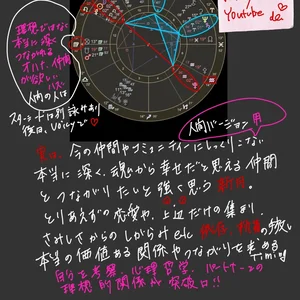 Youtube de
環境ではなく
本当に深く
つながれる
仲間
が欲しい
人間の人は
スタートは別
後日、Voicyで
人間バージョン用
実は、今の仲間やコミュニティーにしっくりこない
本当に深く、魂から幸せだと思える仲間
とつながりたいと強く思う新月。
とりあえずの恋愛や、上辺だけの集まり
さみしさからのしがらみetc 依存、執着の手放し
本当の価値ある関係やつながりを求める
Timing
自分を考察、心理哲学、パートナーとの
理想的関係が突破口!!